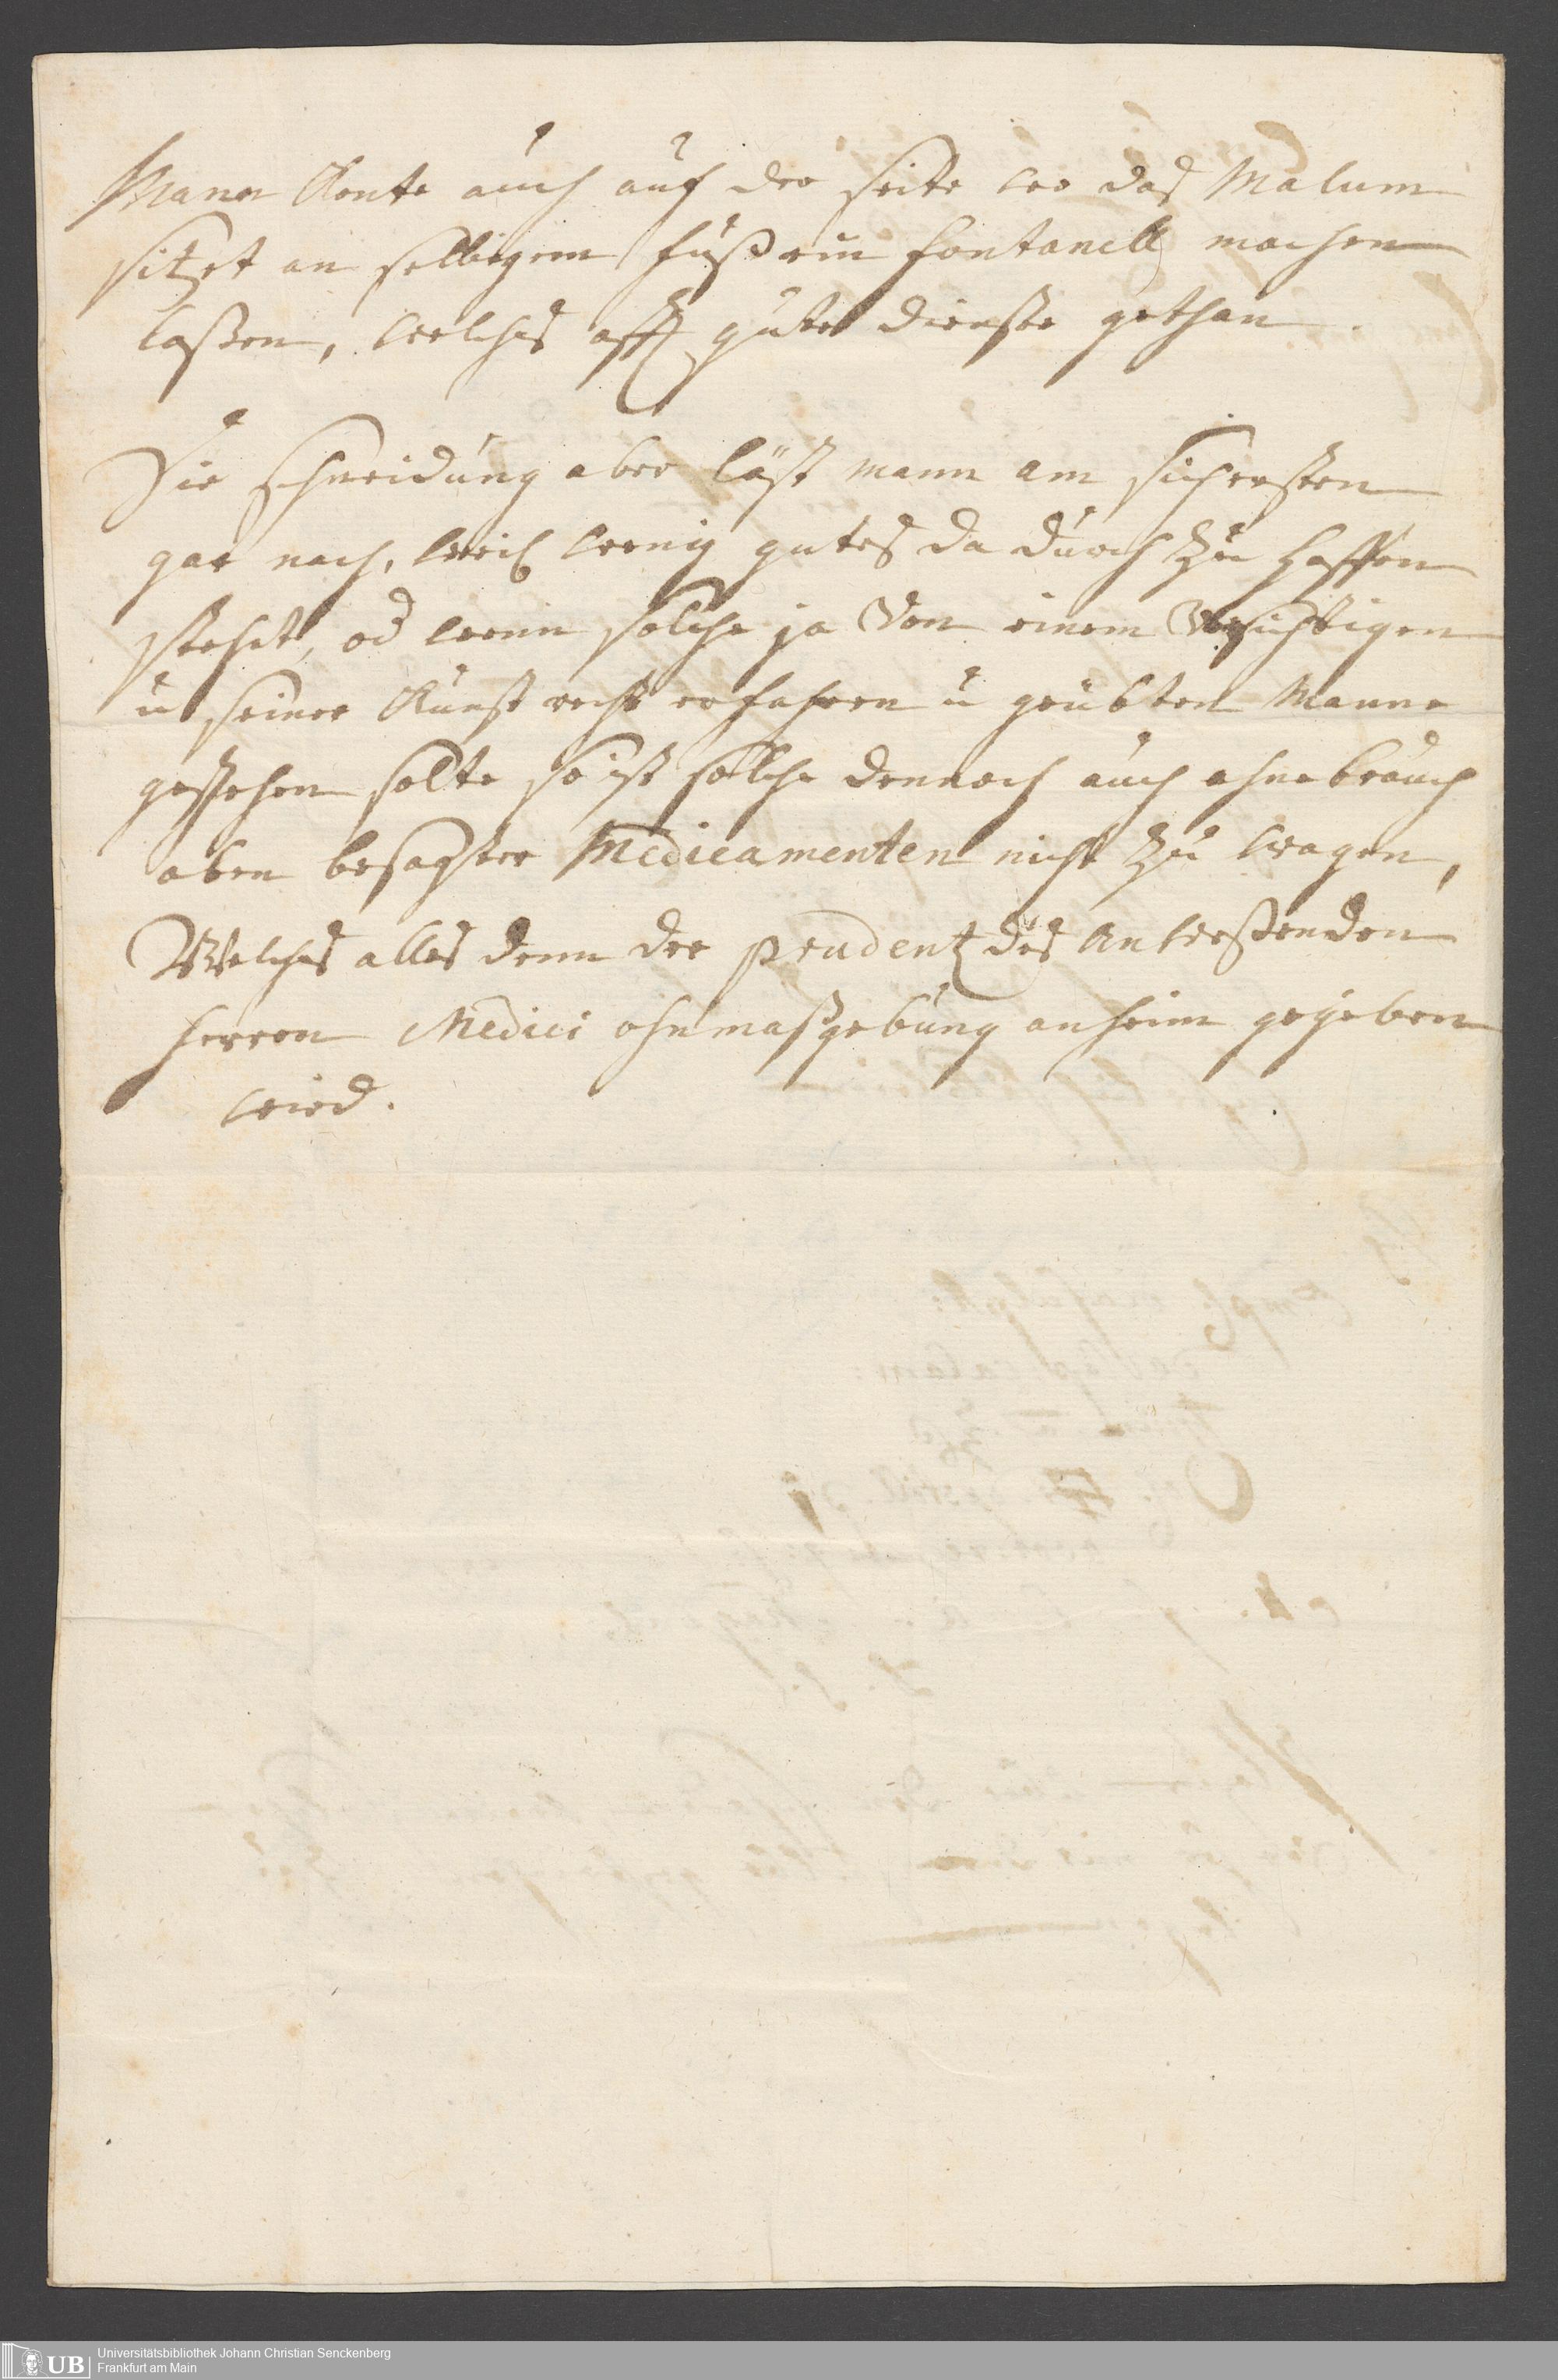 Mann konte auch auf der seite wo das Malum
sitzet an selbigem fuß ein fontanell machen
laßen, welches offt gute dienste gethan.
Die schneidung aber läst mann am sichersten
gar nach, weil wenig gutes da durch zu hoffen
stehet, od wenn solche ja von einem vorsichtigen
u seiner Kunst recht erfahren u geübten Manne
geschehen solte so ist solche dennoch auch ohne brauch
oben besagter Medicamenten nicht zu wagen,
Welches alles denn der prudentz des Anweßenden
herren Medici ohnmaßgebung anheim gegeben
wird.
UB
Universitätsbibliothek Johann Christian Senckenberg
Frankfurt am Main